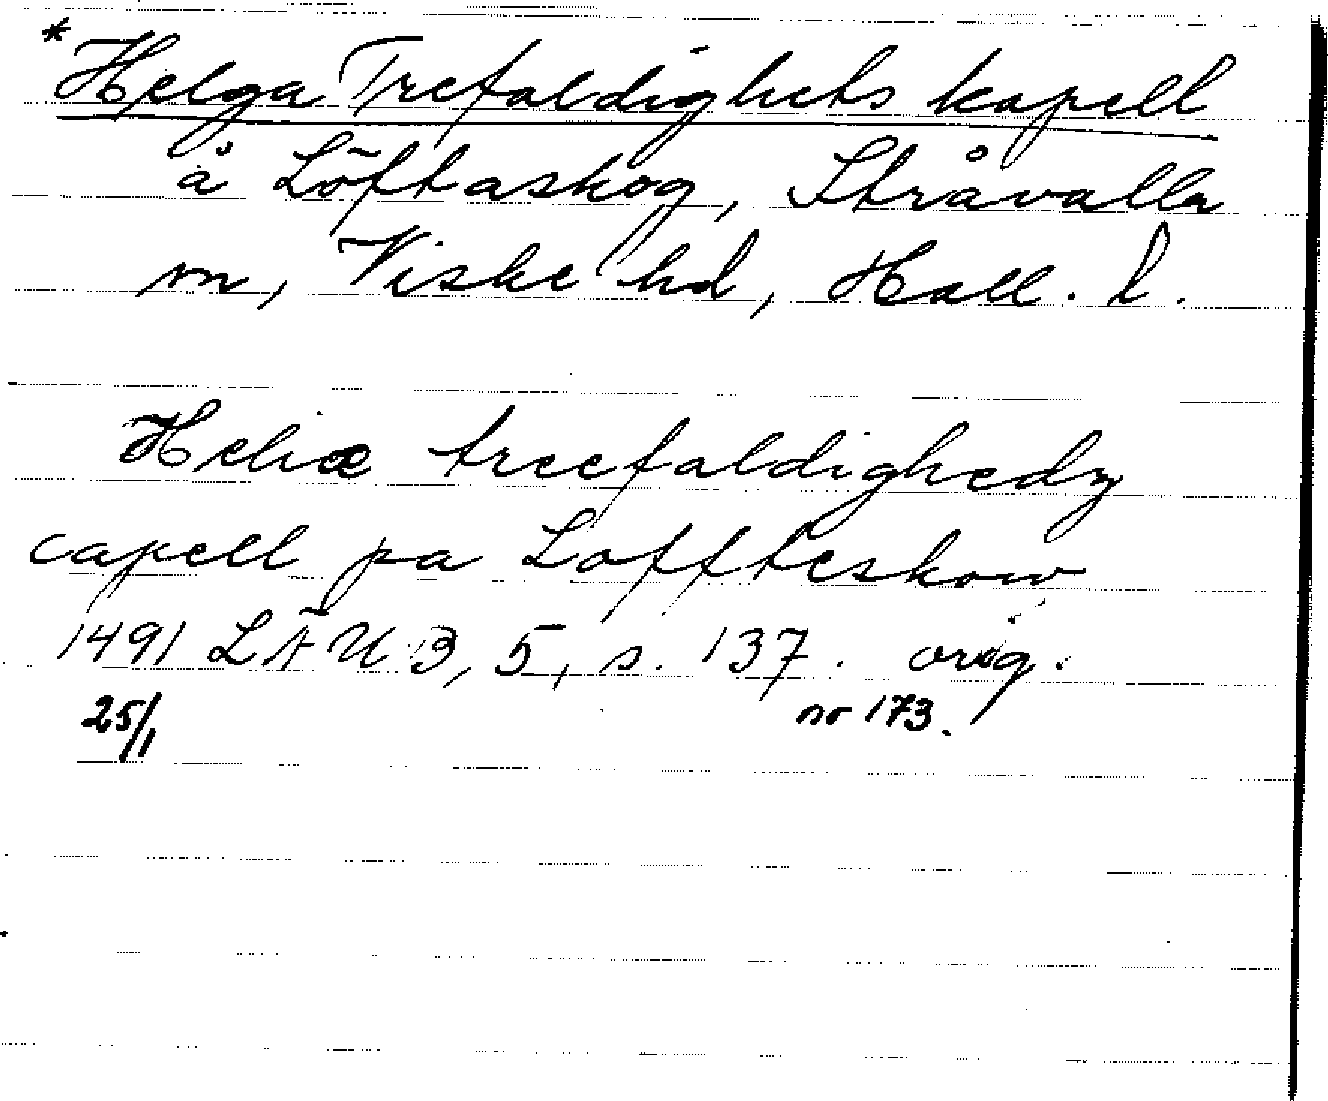 *Helga Trefaldighets kapell
å Löftaskog, Stråvalla
sn, Viske hd, Hall. l.
Heliæ treefaldighedz
capell pa Loffteskow
1491 LÄU 3, 5, s. 137. orig.
25/1 nr 173.